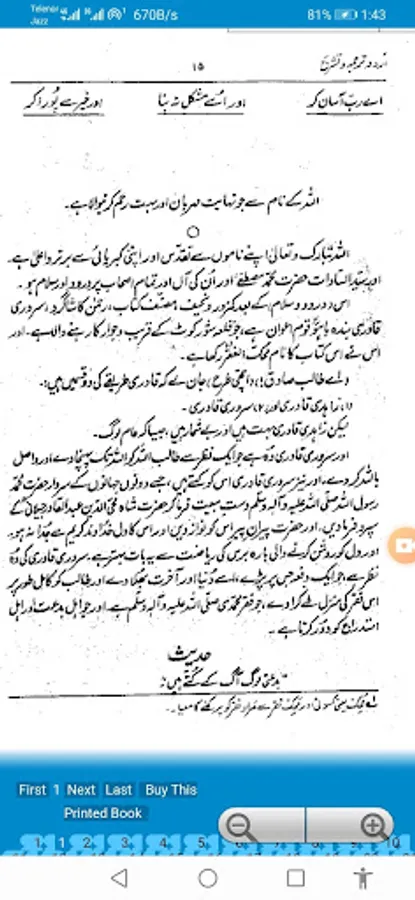 Telenor
Jazz
670B/s
81%
1:43
اُردو ترجمہ و تشریح
۱۵
اے ربّ آسان کر اور اسے مشکل نہ بنا اور خیر سے پُورا کر
اللہ کے نام سے جو نہایت مہربان اور بہت رحم کرنیوالا ہے۔
اللہ تبارک و تعالیٰ اپنے ناموں سے تقدس اور اپنی کبریائی سے برتر و اعلیٰ ہے۔
اور سید السادات حضرت محمد مصطفےٰ اور اُن کی آل اور تمام اصحاب پر درود اور سلام ہو۔
اس درود و سلام کے بعد کمزور و نحیف مصنف کتاب، رحمٰن کا شاگرد، سروری
قادری بندہ باہو قوم اعوان ہے، جو قلعہ شور کوٹ کے قریب و جوار کا رہنے والا ہے۔ اور
اس نے اس کتاب کا نام محک الفقر رکھا ہے۔
اے طالب صادق! اچھی طرح جان لے کہ قادری طریقے کی دو قسمیں ہیں:
۱، زاہدی قادری اور ۲، سروری قادری۔
لیکن زاہدی قادری بہت ہیں اور بے شمار ہیں، جیسا کہ عام لوگ۔
اور سروری قادری وُہ ہے جو ایک نظر سے طالب اللہ کو اللہ تک پہنچا دے اور واصل
باللہ کر دے، اور نیز سروری قادری اس کو کہتے ہیں، جسے دونوں جہانوں کے سردار حضرت محمد
رسول اللہ صلی اللہ علیہ وآلہ وسلم دستِ بیعت فرما کر حضرت شاہ محی الدین عبدالقادر جیلانیؒ کے
سپرد فرما دیں، اور حضرت پیرانِ پیر اس کو نواز دیں اور اس کا دل خداوند کریم سے جُدا نہ ہو۔
اور دل کو روشن کرنے والی بارہ برس کی ریاضت سے یہ بات بہتر ہے۔ سروری قادری کی وُہ
نظر ہے، جو ایک دفعہ جس پر پڑے، اسے دُنیا اور آخرت بھلا دے اور طالب کو کامل طور پر
اس فقر کی منزل طے کرا دے، جو فقرِ محمدی صلی اللہ علیہ وآلہ وسلم ہے۔ اور جو اہل بدعت اور اہل
استدراج کو دُور کرتا ہے۔
حدیث
"بدعتی لوگ آگ کے کُتے ہیں؛
لے محک یعنی کسوٹی اور محک فقر سے مراد فقر کو پرکھنے کا معیار۔
First 1 Next Last Buy This
Printed Book
1. 1 2. 3. 4. 5. 6. 7. 8. 9. 10